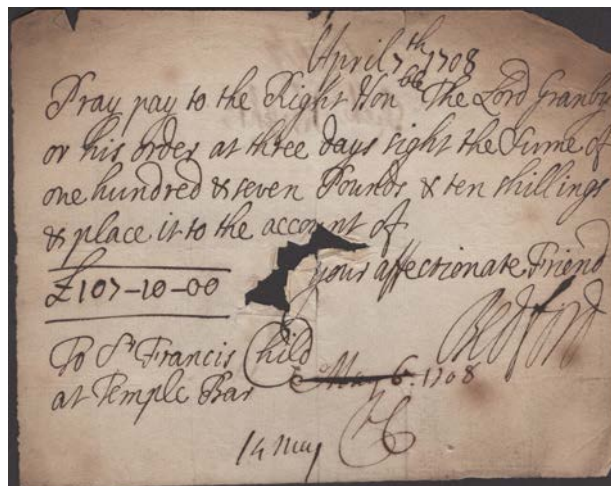 April 7th 1708
Pray pay to the Right Honble The Lord Granby
or his order at three days sight the Sume of
one hundred & seven Pounds & ten shillings
& place it to the account of
your affectionate Friend
£107-10-00
Bedford
To Sr Francis Child
at Temple Bar
May 6. 1708
14 May